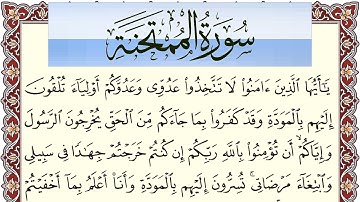 سُورَةُ الْمُمْتَحَنَةِ
يَٰٓأَيُّهَا ٱلَّذِينَ ءَامَنُوا۟ لَا تَتَّخِذُوا۟ عَدُوِّى وَعَدُوَّكُمْ أَوْلِيَآءَ تُلْقُونَ
إِلَيْهِم بِٱلْمَوَدَّةِ وَقَدْ كَفَرُوا۟ بِمَا جَآءَكُم مِّنَ ٱلْحَقِّ يُخْرِجُونَ ٱلرَّسُولَ
وَإِيَّاكُمْ ۙ أَن تُؤْمِنُوا۟ بِٱللَّهِ رَبِّكُمْ إِن كُنتُمْ خَرَجْتُمْ جِهَٰدًا فِى سَبِيلِى
وَٱبْتِغَآءَ مَرْضَاتِى ۚ تُسِرُّونَ إِلَيْهِم بِٱلْمَوَدَّةِ وَأَنَا۠ أَعْلَمُ بِمَآ أَخْفَيْتُمْ